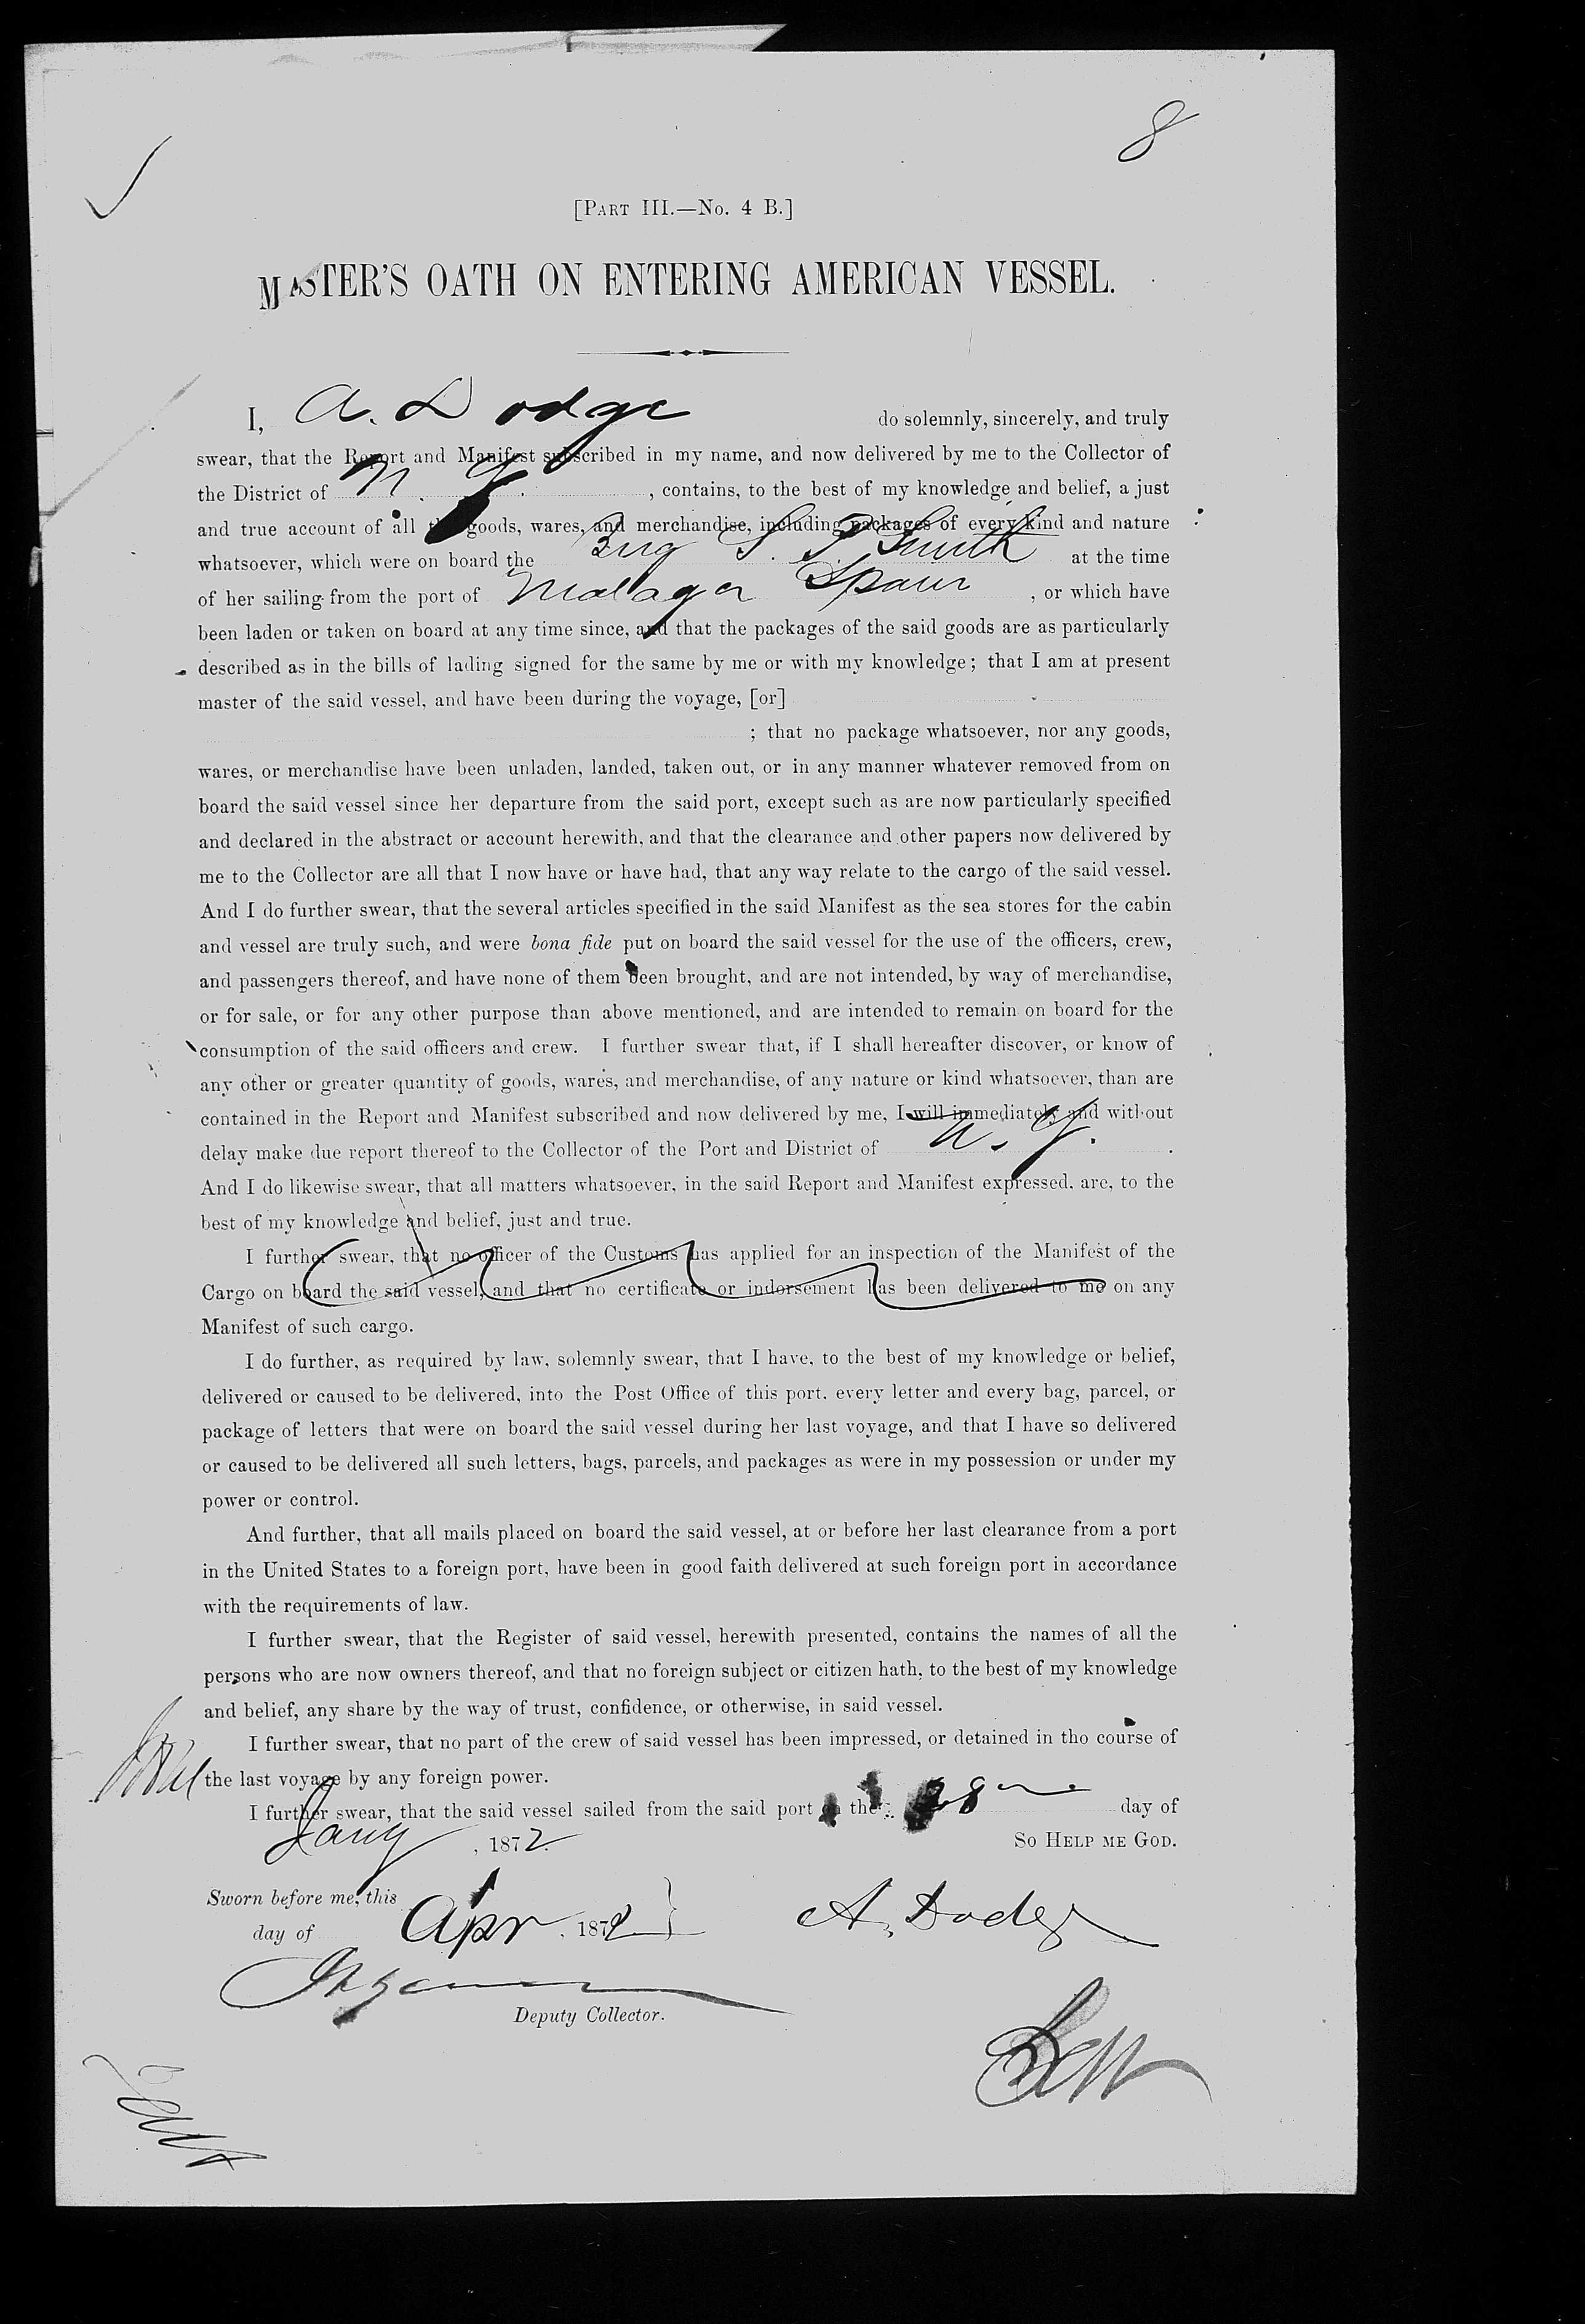 8
[PART III.—No. 4 B.]
MASTER'S OATH ON ENTERING AMERICAN VESSEL.
I, A. Dodge do solemnly, sincerely, and truly
swear, that the Report and Manifest subscribed in my name, and now delivered by me to the Collector of
the District of N. Y. , contains, to the best of my knowledge and belief, a just
and true account of all the goods, wares, and merchandise, including packages of every kind and nature
whatsoever, which were on board the Brig S. P Smith at the time
of her sailing from the port of Malaga Spain , or which have
been laden or taken on board at any time since, and that the packages of the said goods are as particularly
described as in the bills of lading signed for the same by me or with my knowledge; that I am at present
master of the said vessel, and have been during the voyage, [or]
; that no package whatsoever, nor any goods,
wares, or merchandise have been unladen, landed, taken out, or in any manner whatever removed from on
board the said vessel since her departure from the said port, except such as are now particularly specified
and declared in the abstract or account herewith, and that the clearance and other papers now delivered by
me to the Collector are all that I now have or have had, that any way relate to the cargo of the said vessel.
And I do further swear, that the several articles specified in the said Manifest as the sea stores for the cabin
and vessel are truly such, and were bona fide put on board the said vessel for the use of the officers, crew,
and passengers thereof, and have none of them been brought, and are not intended, by way of merchandise,
or for sale, or for any other purpose than above mentioned, and are intended to remain on board for the
consumption of the said officers and crew. I further swear that, if I shall hereafter discover, or know of
any other or greater quantity of goods, wares, and merchandise, of any nature or kind whatsoever, than are
contained in the Report and Manifest subscribed and now delivered by me, I will immediately and without
delay make due report thereof to the Collector of the Port and District of N. Y.
And I do likewise swear, that all matters whatsoever, in the said Report and Manifest expressed, are, to the
best of my knowledge and belief, just and true.
I further swear, that no officer of the Customs has applied for an inspection of the Manifest of the
Cargo on board the said vessel, and that no certificate or indorsement has been delivered to me on any
Manifest of such cargo.
I do further, as required by law, solemnly swear, that I have, to the best of my knowledge or belief,
delivered or caused to be delivered, into the Post Office of this port, every letter and every bag, parcel, or
package of letters that were on board the said vessel during her last voyage, and that I have so delivered
or caused to be delivered all such letters, bags, parcels, and packages as were in my possession or under my
power or control.
And further, that all mails placed on board the said vessel, at or before her last clearance from a port
in the United States to a foreign port, have been in good faith delivered at such foreign port in accordance
with the requirements of law.
I further swear, that the Register of said vessel, herewith presented, contains the names of all the
persons who are now owners thereof, and that no foreign subject or citizen hath, to the best of my knowledge
and belief, any share by the way of trust, confidence, or otherwise, in said vessel.
I further swear, that no part of the crew of said vessel has been impressed, or detained in tho course of
the last voyage by any foreign power.
I further swear, that the said vessel sailed from the said port on the 28 day of
Jany , 1872. SO HELP ME GOD.
Sworn before me, this 1
day of Apr , 1872 A. Dodge
Deputy Collector.